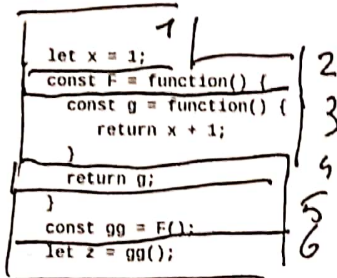 1
let x = 1; 2
const F = function() {
const g = function() { 3
return x + 1;
} 4
return g;
} 5
const gg = F();
let z = gg(); 6